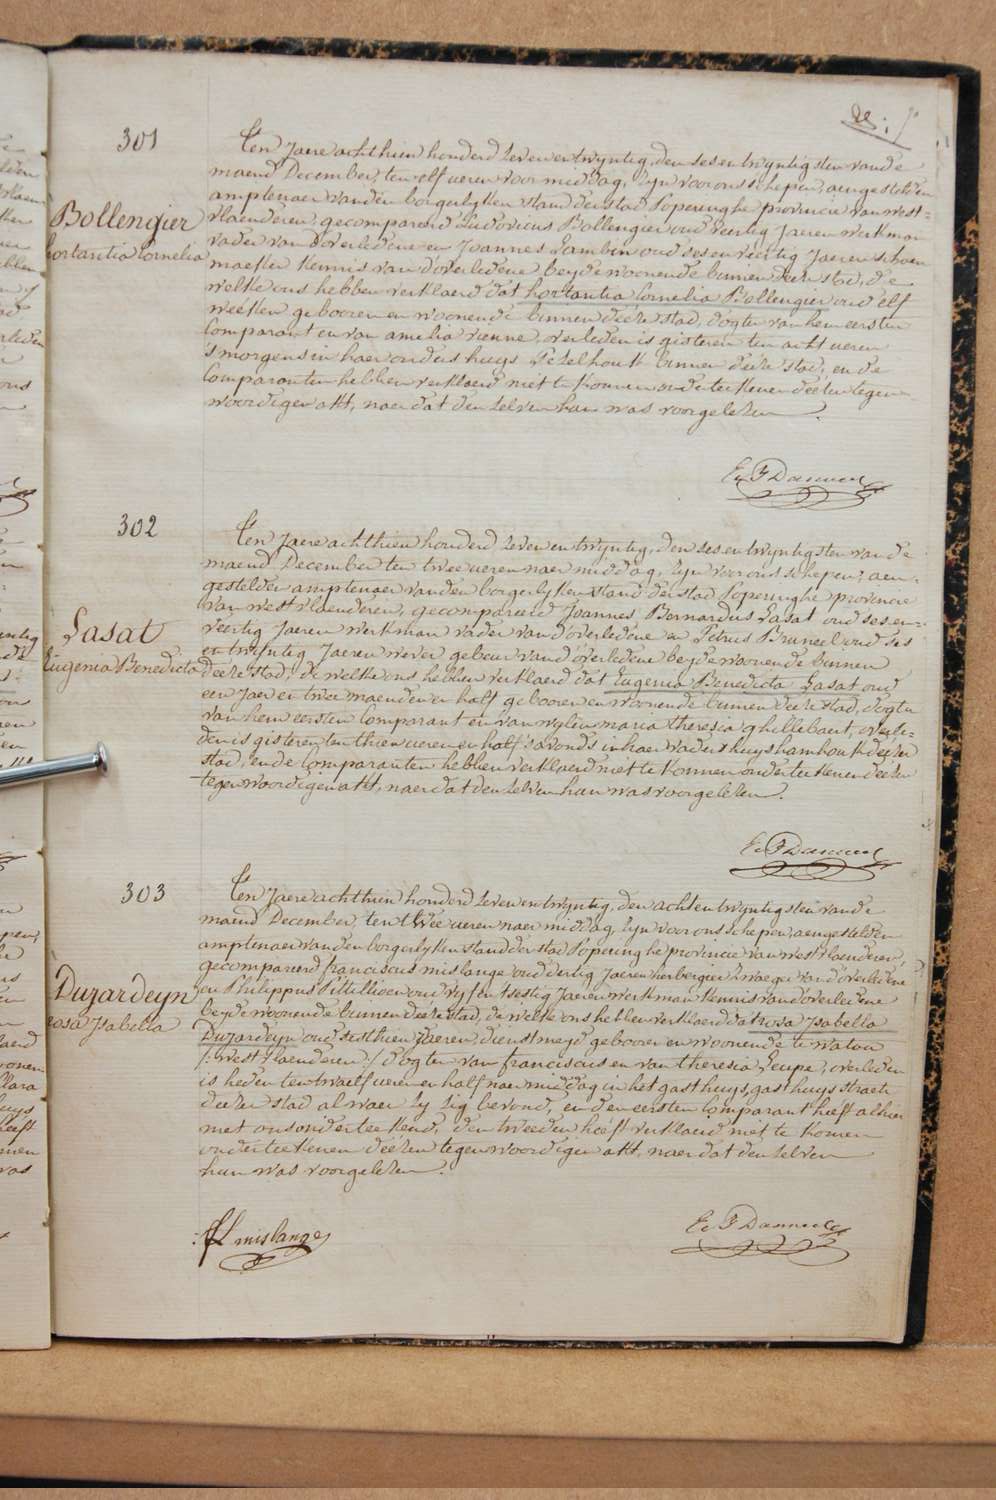 301
Ten Jaere achthien honderd zeven en twyntig, den ses en twyntigsten van de
maend December, ten elf ueren voor middag, zyn voor ons schepen, aengestelden
amptenaer van den borgerlyken stand der stad Poperinghe provincie van west=
vlaenderen, gecompareerd Ludovicus Bollengier oud veertig Jaeren werkman
Bollengier
hortantia Cornelia
vader van d'overledene en Joannes Lambin oud des en veertig Jaeren schoen
maeker kennis van d'overledene beyde woonende binnen deeze stad, de
welke ons hebben verklaerd dat hortantia Cornelia Bollengier oud elf
weeken gebooren en woonende binnen deeze stad, dogter van hem eersten
Comparant en van amelia vienne, overleden is gisteren ten acht ueren
's morgens in haer ouders huys binnen deeze stad, en de
Comparanten hebben verklaerd niet te konnen onderteekenen deezen tegen=
woordigen akt, naer dat den zelven hun was voorgelezen.
302
Ten Jaere achthien honderd zeven en twyntig, den ses en twyntigsten van de
maend December ten twee ueren naer middag, zyn voor ons schepen, aen=
gestelden amptenaer van den borgerlyken stand der stad Poperinghe provincie
van westvlaenderen, gecompareerd Joannes Bernardus Lasat oud ses en=
veertig Jaeren werkman vader van d'overledene en Petrus Bruneel oud ses
Lasat
Eugenia Benedicta
en twyntig Jaeren wever gebeur van d'overledene beyde woonende binnen
deeze stad, de welke ons hebben verklaerd dat Eugenia Benedicta Lasat oud
een Jaer en twee maenden en half gebooren en woonende binnen deeze stad, dogter
van hem eersten Comparant en van wylen maria theresia ghillebaert, overle=
den is gisteren, ten thien ueren en half s'avonds in haer vaders huys deezer
stad, en de Comparanten hebben verklaerd niet te konnen onderteekenen deezen
tegenwoordigen akt, naer dat den zelven hun was voorgelezen.
303
Ten Jaere achthien honderd zeven en twyntig, den acht en twyntigsten van de
maend December, ten twee ueren naer middag, zyn voor ons schepen, aengestelden
amptenaer van den borgerlyken stand der stad Poperinghe provincie van westvlaenderen,
gecompareerd franciscus mislange oud dertig Jaeren herbergier zwaeger van d'overledene
Duzardeyn
rosa Isabella
en Philippus Pittillioen oud vyf en tsestig Jaeren werkman kennis van d'overledene
beyde woonende binnen deeze stad, de welke ons hebben verklaerd dat rosa Isabella
Duzardeyn oud sesthien Jaeren, dienstmeyd gebooren en woonende te watou
/: West vlaenderen :/ dogter van franciscus en van theresia Leupe, overleden
is heden ten twaelf ueren en half naer middag in het gasthuys, gasthuys straete
deezer stad alwaer zy zig bevond, en den eersten Comparant heeft alhier
met ons onderteekend, den tweeden heeft verklaerd niet te konnen
onderteekenen deezen tegenwoordigen akt, naer dat den zelven
hun was voorgelezen.
mislange